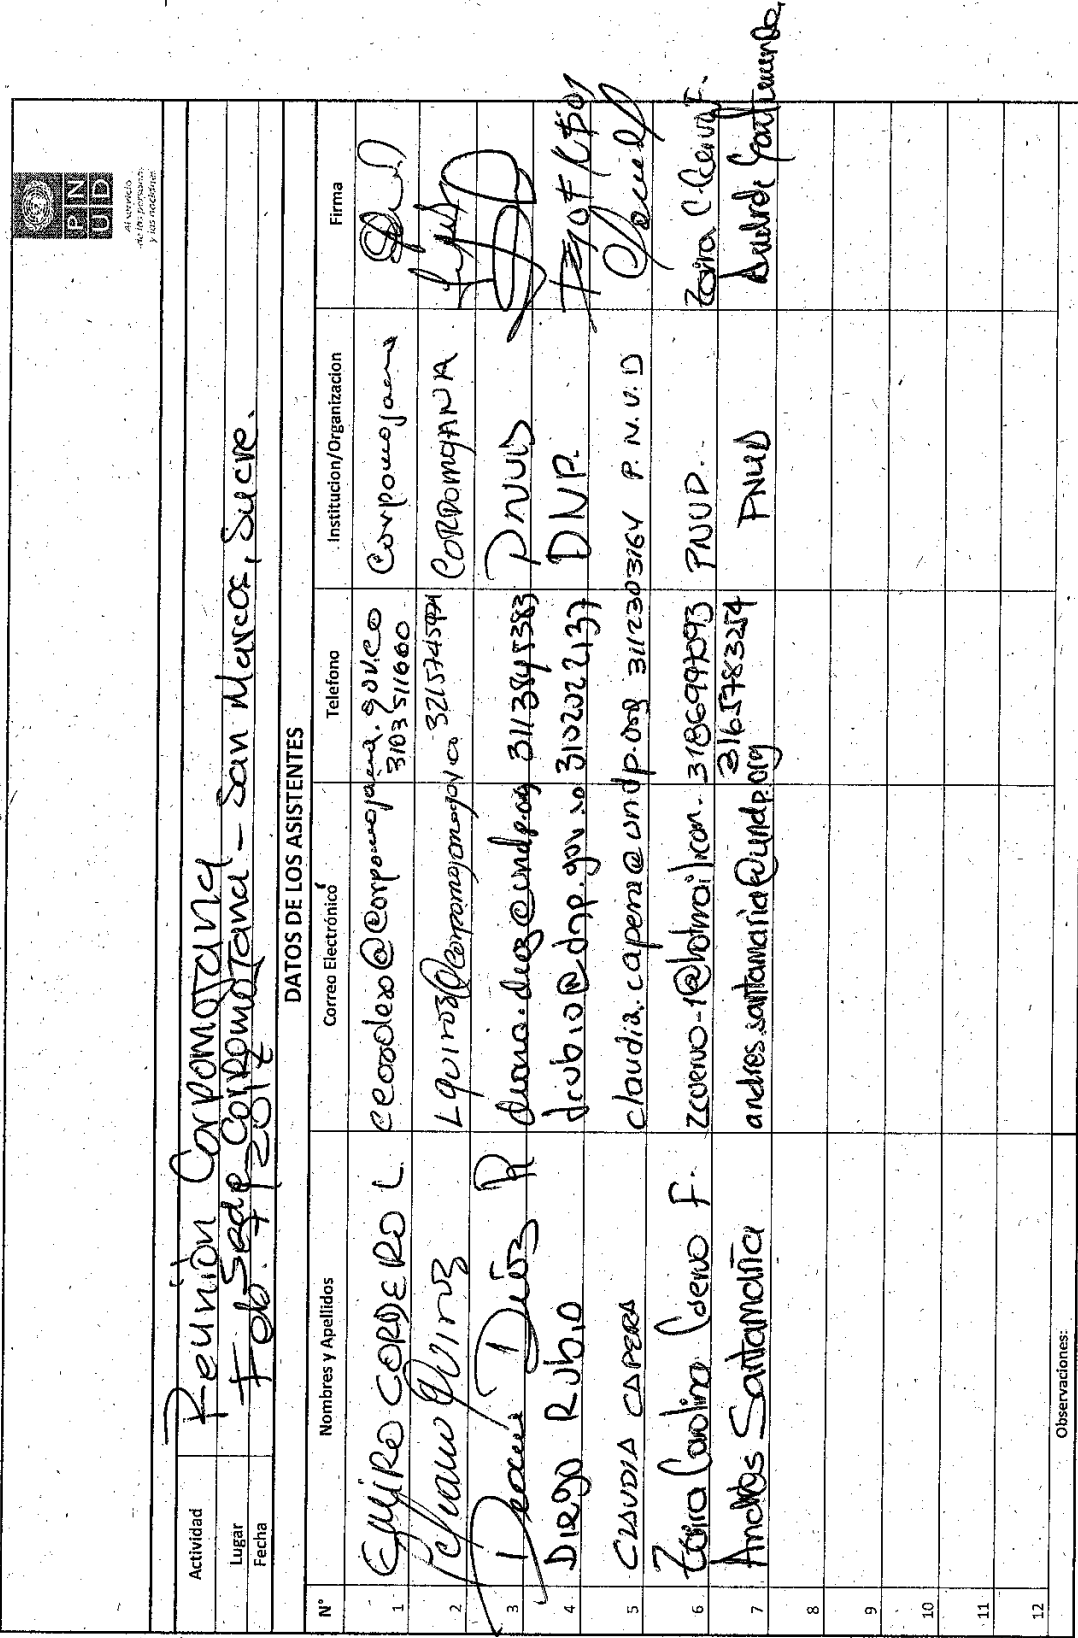 PNUD
Al servicio
de las personas
y las naciones
Actividad Reunión Corpomojana
Lugar Sede Corpomojana - San Marcos, Sucre.
Fecha Feb. 7/2017
DATOS DE LOS ASISTENTES
N° Nombres y Apellidos Correo Electrónico Telefono Institucion/Organizacion Firma
1 CORDERO L. @Corpomojana.gov.co 3103511660 Corpomojana
2 Quiroz Lquiroz@corpomojana.gov.co CORPOMOJANA
3 Diana Díaz R diana.diaz@undp.org 3113845383 PNUD
4 DIEGO RUBIO drubio@dnp.gov.co 3102022137 DNP.
5 CLAUDIA CAPERA claudia.capera@undp.org 3112303164 P.N.U.D
6 Carolina Cuervo F. zcuervo-1@hotmail.com. 3186997093 PNUD. C. Cuervo F.
7 Andrés Santamaría andres.santamaria@undp.org 3165783254 PNUD
8
9
10
11
12
Observaciones: